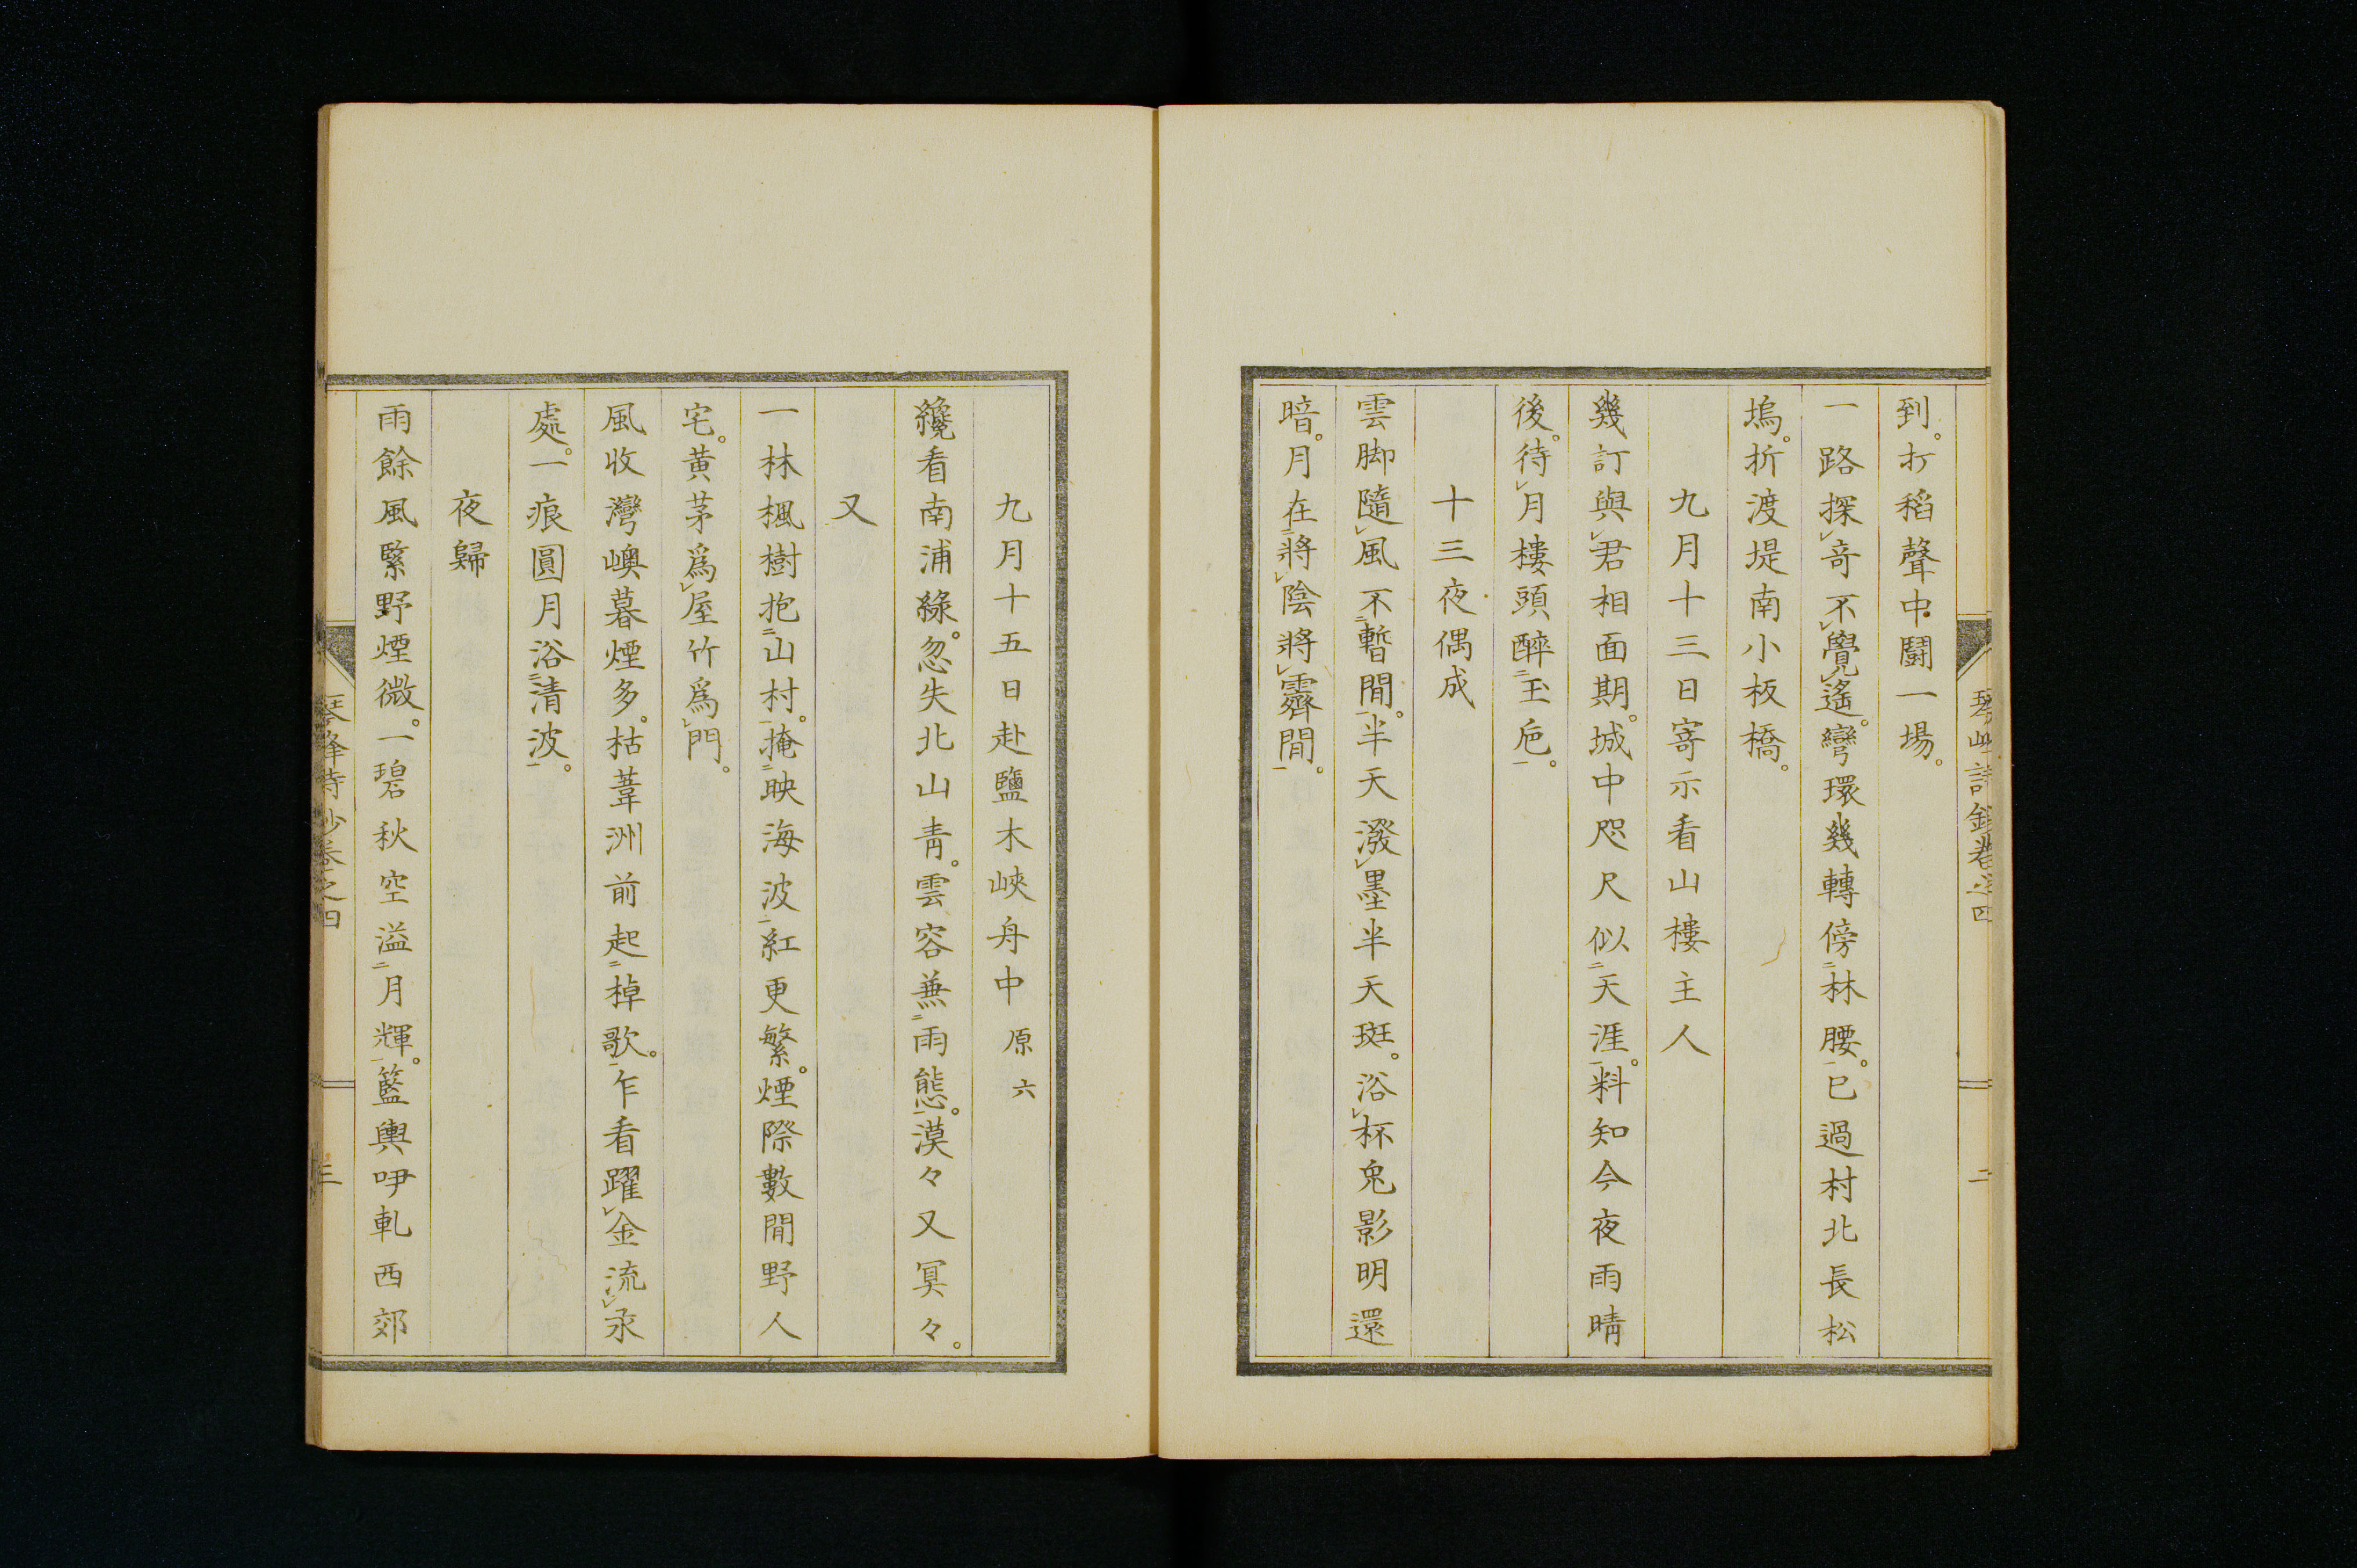 到。打稻聲中鬪一場。
一路探㆑奇不㆑覺㆑遙。彎環幾轉傍㆓林腰㆒。已過村北長松
塢。折渡堤南小板橋。
九月十三日寄示看山樓主人
幾訂與㆑君相面期。城中咫尺似㆓天涯㆒。料知今夜雨晴
後。待㆑月樓頭醉㆓玉卮㆒。
十三夜偶成
雲脚隨㆑風不㆓暫閒㆒。半天潑㆑墨半天斑。浴㆑杯兔影明還
暗。月在㆓將㆑陰將㆑霽間㆒。
二
九月十五日赴鹽木峽舟中 原六
纔看南浦綠。忽失北山青。雲容兼㆓雨態㆒。漠々又冥々。
又
一林楓樹抱㆓山村㆒。掩㆓映海波㆒紅更繁。煙際數間野人
宅。黄茅爲㆑屋竹爲㆑門。
風收灣嶼暮煙多。枯葦洲前起㆓棹歌㆒。乍看躍㆑金流㆑汞
處。一痕圓月浴㆓清波㆒。
夜歸
雨餘風緊野煙微。一碧秋空溢㆓月輝㆒。籃輿咿軋西郊
琴峰詩鈔卷之四
三